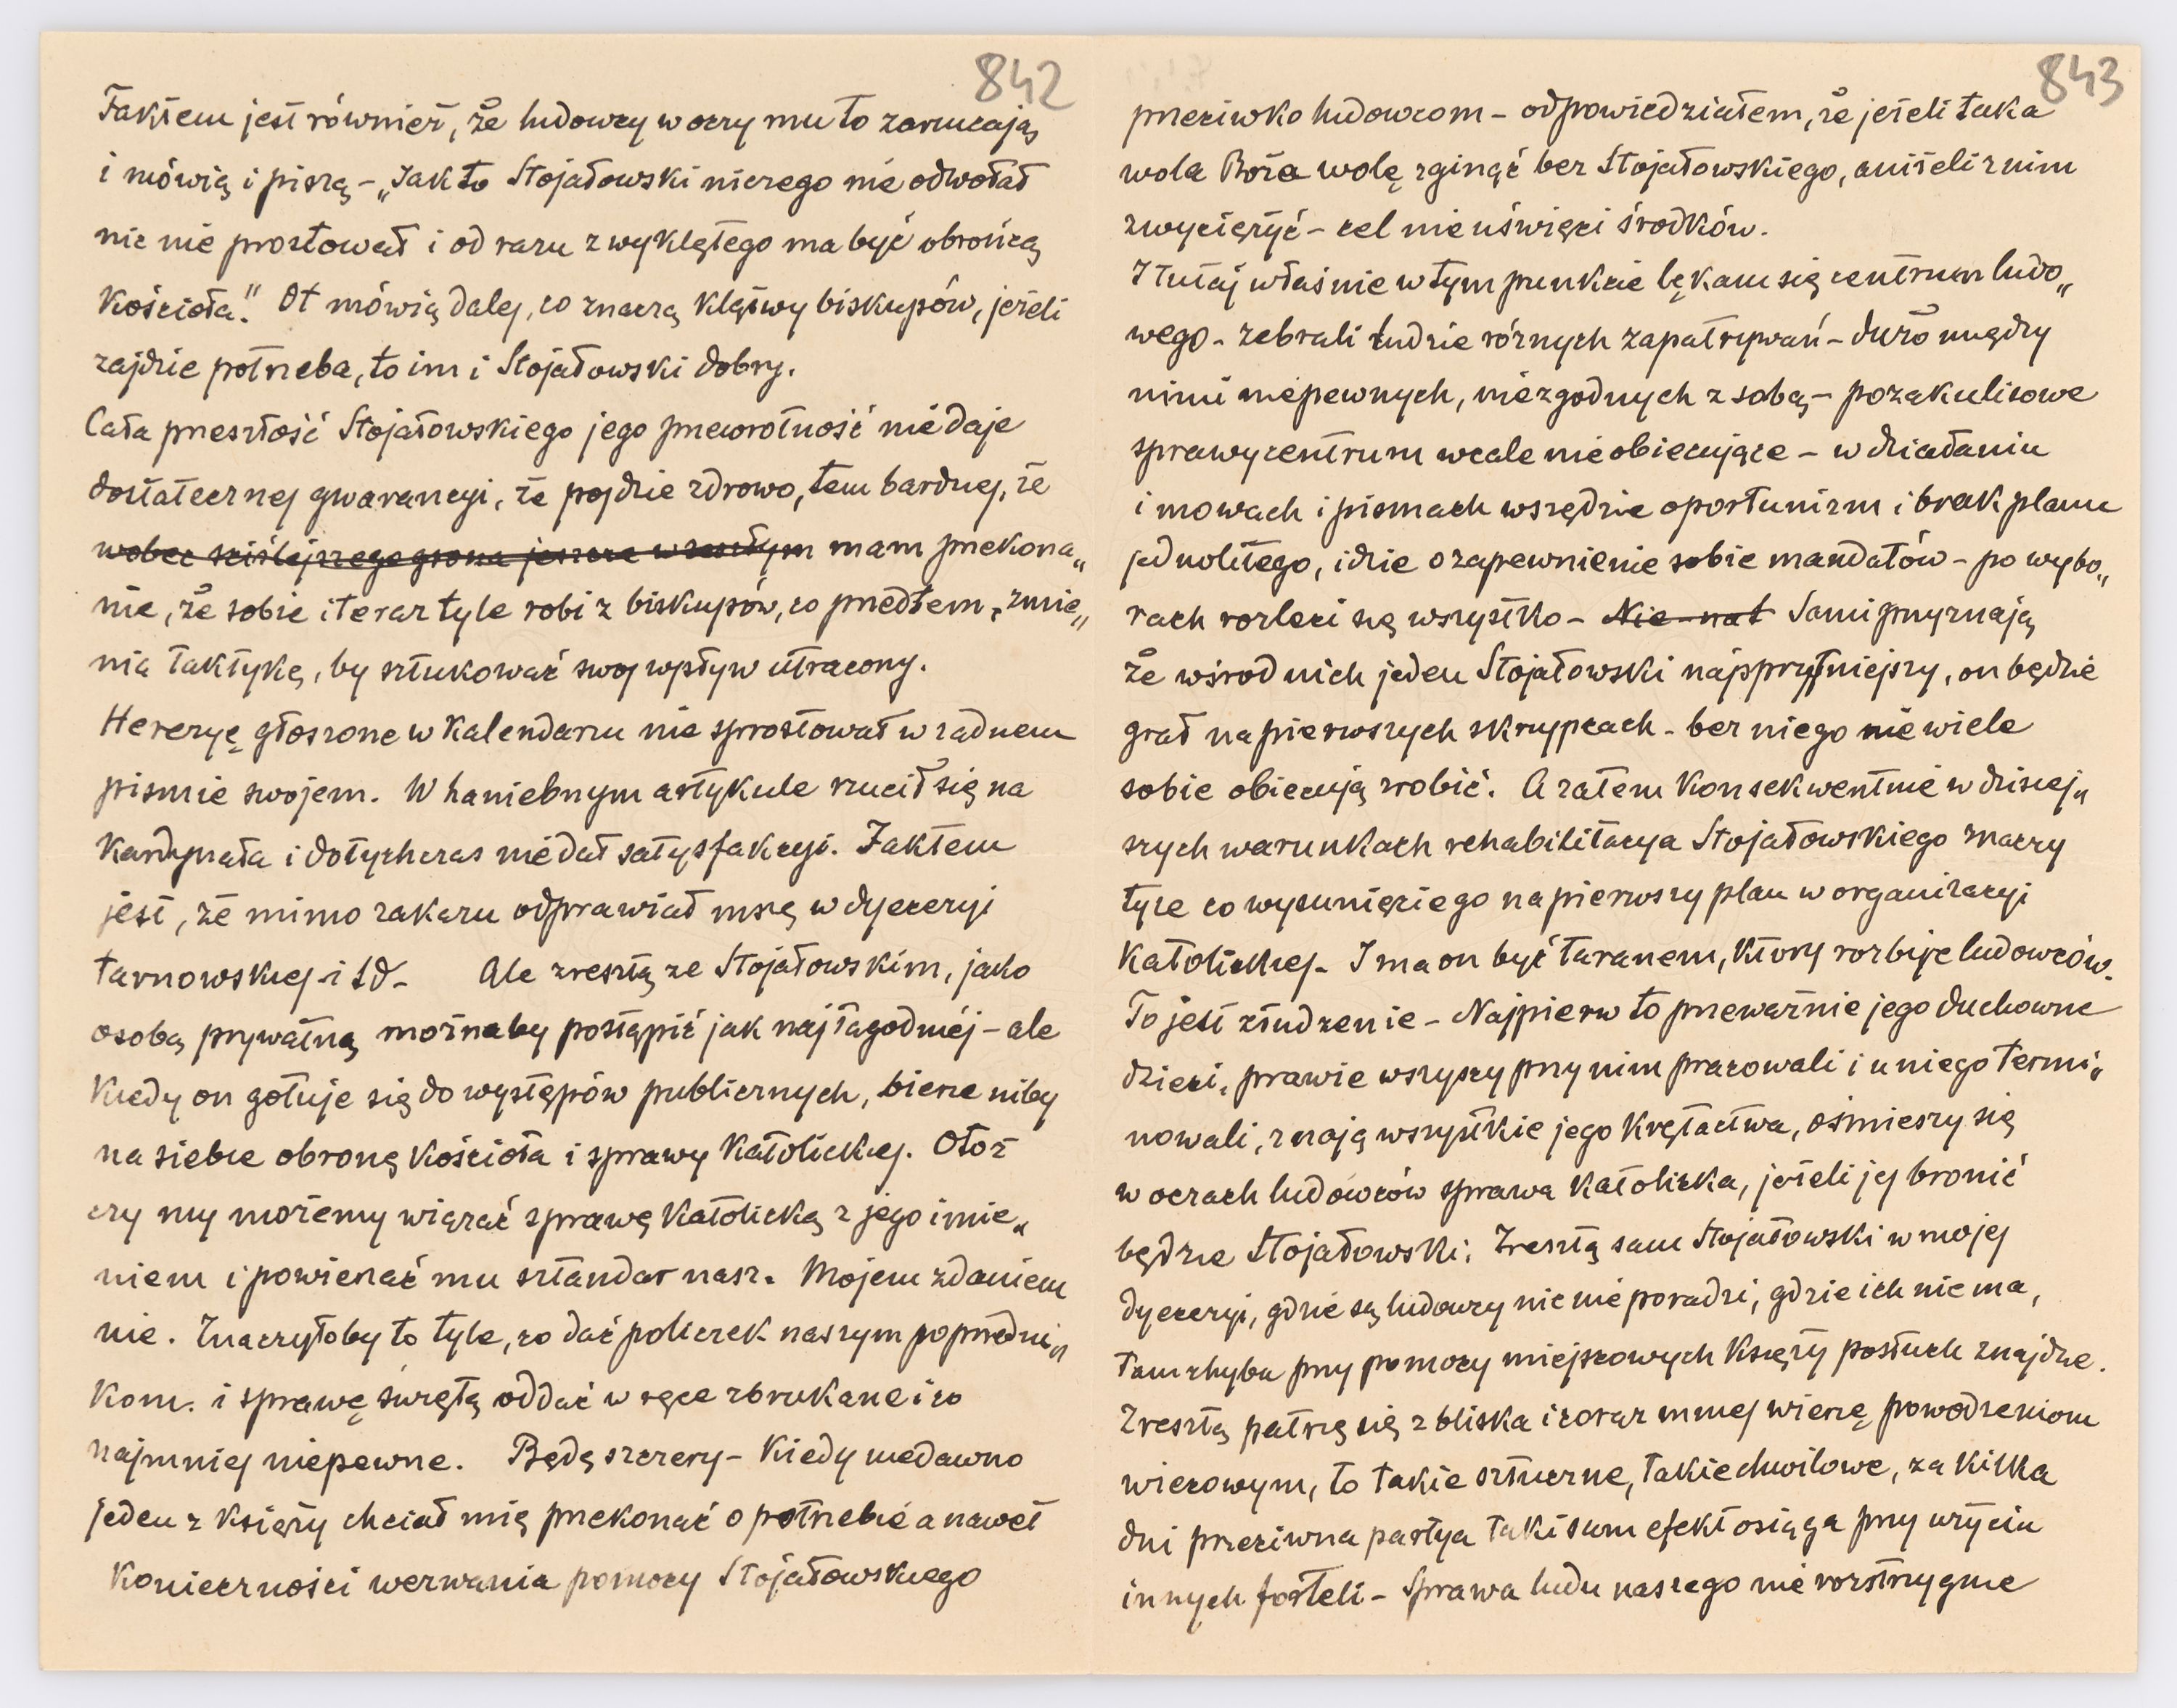 842
Faktem jest również, że ludowcy w oczy mu to zarzucają
i mówią i piszą – „Jak to Stojałowski niczego nie odwołał
nic nie prostował i od razu z wyklętego ma być obrońcą
Kościoła." Ot mówią dalej, co znaczą klątwy biskupów, jeżeli
zajdzie potrzeba, to im i Stojałowski dobry.
Cała przeszłość Stojałowskiego jego przewrotność nie daje
dostatecznej gwarancyi, że pojdzie zdrowo, tem bardziej, że
wobec ściślejszego grona jeszcze w zeszłym mam przekona„
nie, że sobie i teraz tyle robi z biskupów, co przedtem, zmie„
nia taktykę, by sztukować swoj wpływ utracony.
Herezyę głoszone w Kalendarzu nie sprostował w żadnem
pismie swojem. W haniebnym artykule rzucił się na
Kardynała i dotychczas nie dał satysfakcyi. Faktem
jest, że mimo zakazu odprawiał mszę w dyecezyi
tarnowskiej itd. Ale zresztą ze Stojałowskim, jako
osobą prywatną możnaby postąpić jak najłagodniéj – ale
Kiedy on gotuje się do występów publicznych, bierze niby
na siebie obronę Kościoła i sprawy Katolickiej. Otoż
czy my możemy wiązać sprawę Katolicką z jego imie„
niem i powierzać mu sztandar nasz. Mojem zdaniem
nie. Znaczyłoby to tyle, co dać policzek naszym poprzedni„
kom. i sprawę świętą oddać w ręce zbrukane i co
najmniej niepewne. Będę szczery – Kiedy niedawno
jeden z księży chciał mię przekonać o potrzebie a nawet
Konieczności wezwania pomocy Stojałowskiego
843
przeciwko ludowcom – odpowiedziałem, że jeżeli taka
wola Boża wolę zginąć bez Stojałowskiego, aniżeli z nim
zwyciężyć – cel nie uświęci środków.
I tutaj właśnie w tym punkcie lękam się centrum ludo„
wego – zebrali ludzie różnych zapatrywań – dużo między
nimi niepewnych, niezgodnych z sobą – pozakulisowe
sprawy centrum wcale nie obiecujące – w działaniu
i mowach i pismach wszędzie oportunizm i brak planu
jednolitego, idzie o zapewnienie sobie mandatów – po wybo„
rach rozleci się wszystko – Nie nat Sami przyznają
że wśrod nich jeden Stojałowski najsprytniejszy, on będzie
grał na pierwszych skrzypcach – bez niego nie wiele
sobie obiecują zrobić. A zatem Konsekwentnie w dzisiej„
szych warunkach rehabilitacya Stojałowskiego znaczy
tyle co wysunięciego na pierwszy plan w organizacyi
Katolickiej – I ma on być taranem, ktory rozbije ludowców.
To jest złudzenie – Najpierw to przeważnie jego duchowne
dzieci, prawie wszyscy przy nim pracowali i u niego termi„
nowali, znają wszystkie jego krętactwa, ośmieszy się
w oczach ludowców sprawa Katolicka, jeżeli jej bronić
będzie Stojałowski. Zresztą sam Stojałowski w mojej
dyecezyi, gdzie są ludowcy nic nie poradzi, gdzie ich nie ma,
tam chyba przy pomocy miejscowych Księży posłuch znajdzie.
Zresztą patrzę się z bliska i coraz mniej wierzę powodzeniom
wiecowym, to takie sztuczne, takie chwilowe, za kilka
dni przeciwna partya taki sam efekt osiąga przy użyciu
innych forteli – Sprawa ludu naszego nie rozstrzygnie